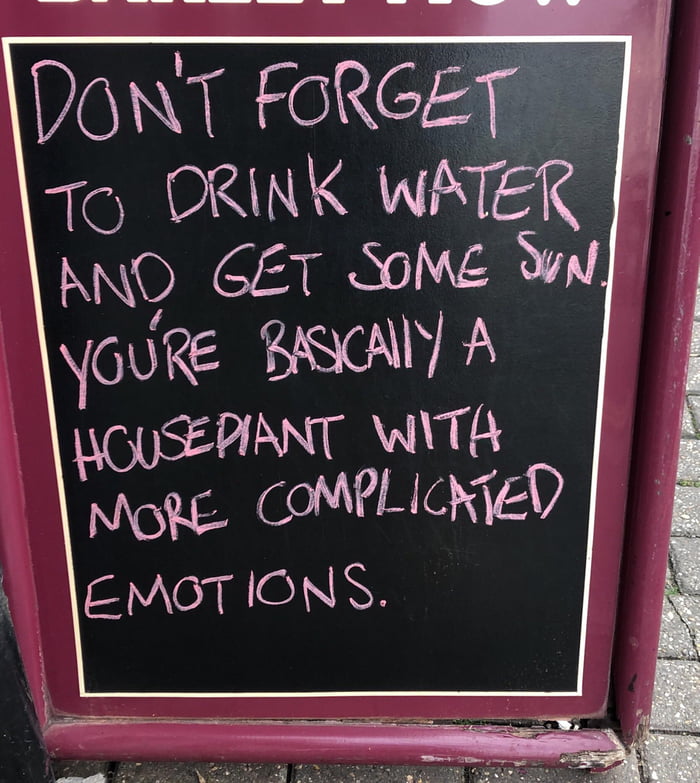 DON'T FORGET
TO DRINK WATER
AND GET SOME SUN.
YOU'RE BASICALLY A
HOUSEPLANT WITH
MORE COMPLICATED
EMOTIONS.